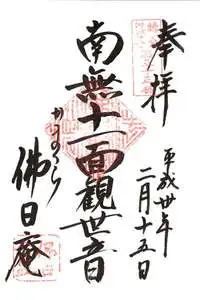 奉拝
平成卅年
二月十五日
南無十一面観世音
かまくら
佛日庵